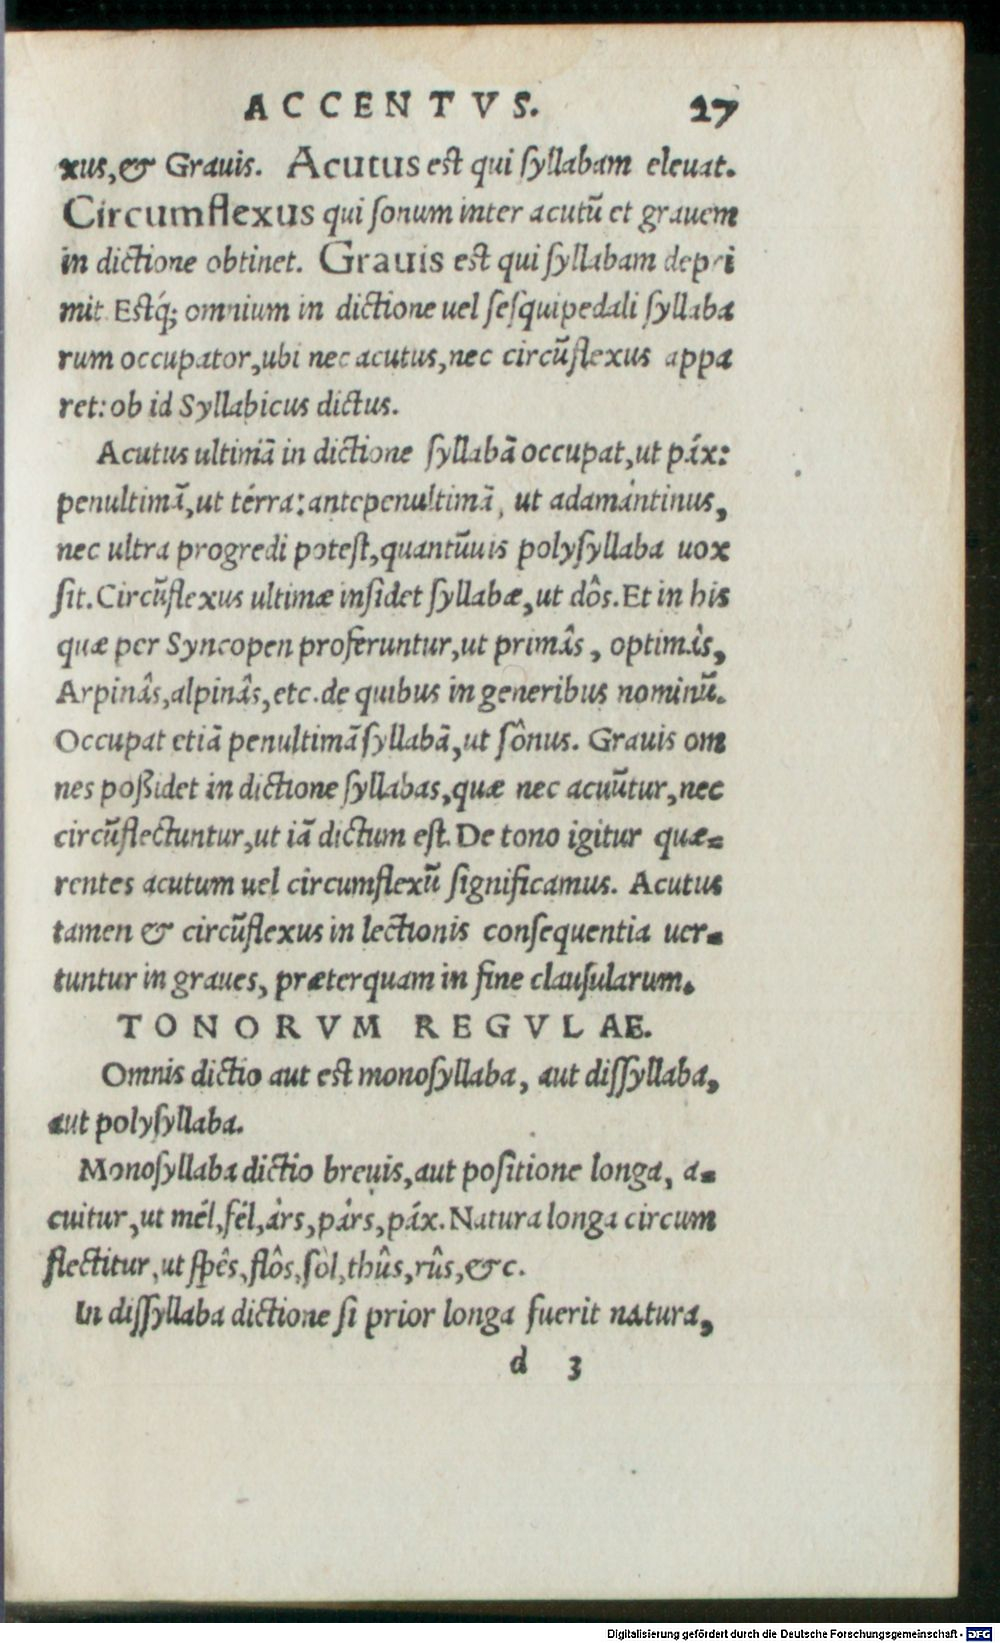 ACCENTVS. 27
xus,& Grauis. Acutus est qui syllabam eleuat.
Circumflexus qui sonum inter acutū et grauem
in dictione obtinet. Grauis est qui syllabam depri
mit Estq́; omnium in dictione uel sesquipedali syllaba
rum occupator,ubi nec acutus,nec circūflexus appa
ret: ob id Syllabicus dictus.
Acutus ultimā in dictione syllabā occupat,ut páx:
penultimā,ut térra: antepenultimā, ut adamántinus,
nec ultra progredi potest,quantūuis polysyllaba uox
sit. Circūflexus ultimæ insidet syllabæ,ut dôs. Et in his
quæ per Syncopen proferuntur,ut primâs, optimâs,
Arpinâs,alpinâs,etc.de quibus in generibus nominū.
Occupat etiā penultimā syllabā,ut sônus. Grauis om
nes poßidet in dictione syllabas,quæ nec acuūtur,nec
circūflectuntur,ut iā dictum est. De tono igitur quæ-
rentes acutum uel circumflexū significamus. Acutus
tamen & circūflexus in lectionis consequentia uer-
tuntur in graues, præterquam in fine clausularum.
TONORVM REGVLAE.
Omnis dictio aut est monosyllaba, aut dissyllaba,
aut polysyllaba.
Monosyllaba dictio breuis,aut positione longa, a-
cuitur,ut mél,fél,árs,párs,páx. Natura longa circum
flectitur,ut spês,flôs,sòl,thûs,rûs,&c.
In dissyllaba dictione si prior longa fuerit natura,
d 3
Digitalisierung gefördert durch die Deutsche Forschungsgemeinschaft - DFG